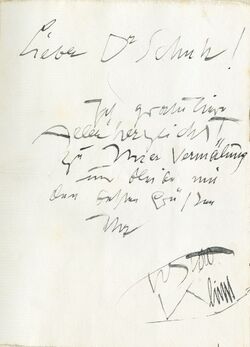 Lieber Dr Schuh!
Ich gratuliere
allerherzlichst
zu Ihrer Vermählung
und bleibe mit
den besten Grüßen
Ihr